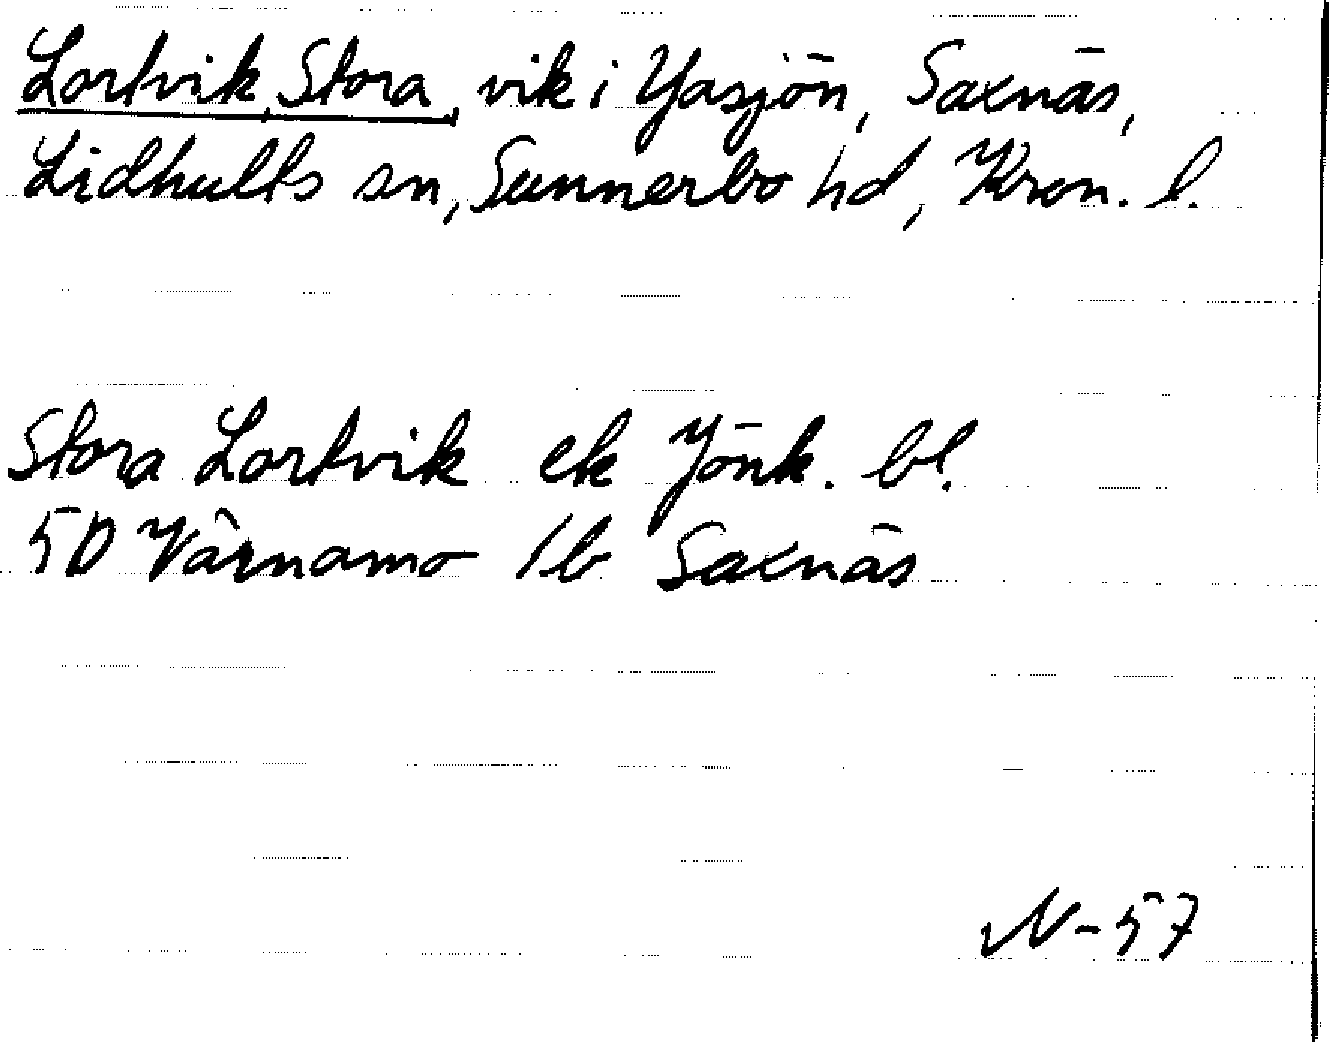 Lortvik, Stora, vik i Yasjön, Saxnäs,
Lidhults sn, Sunnerbo hd, Kron. l.
Stora Lortvik ek Jönk. bl.
5D Värnamo 1b Saxnäs
N-57